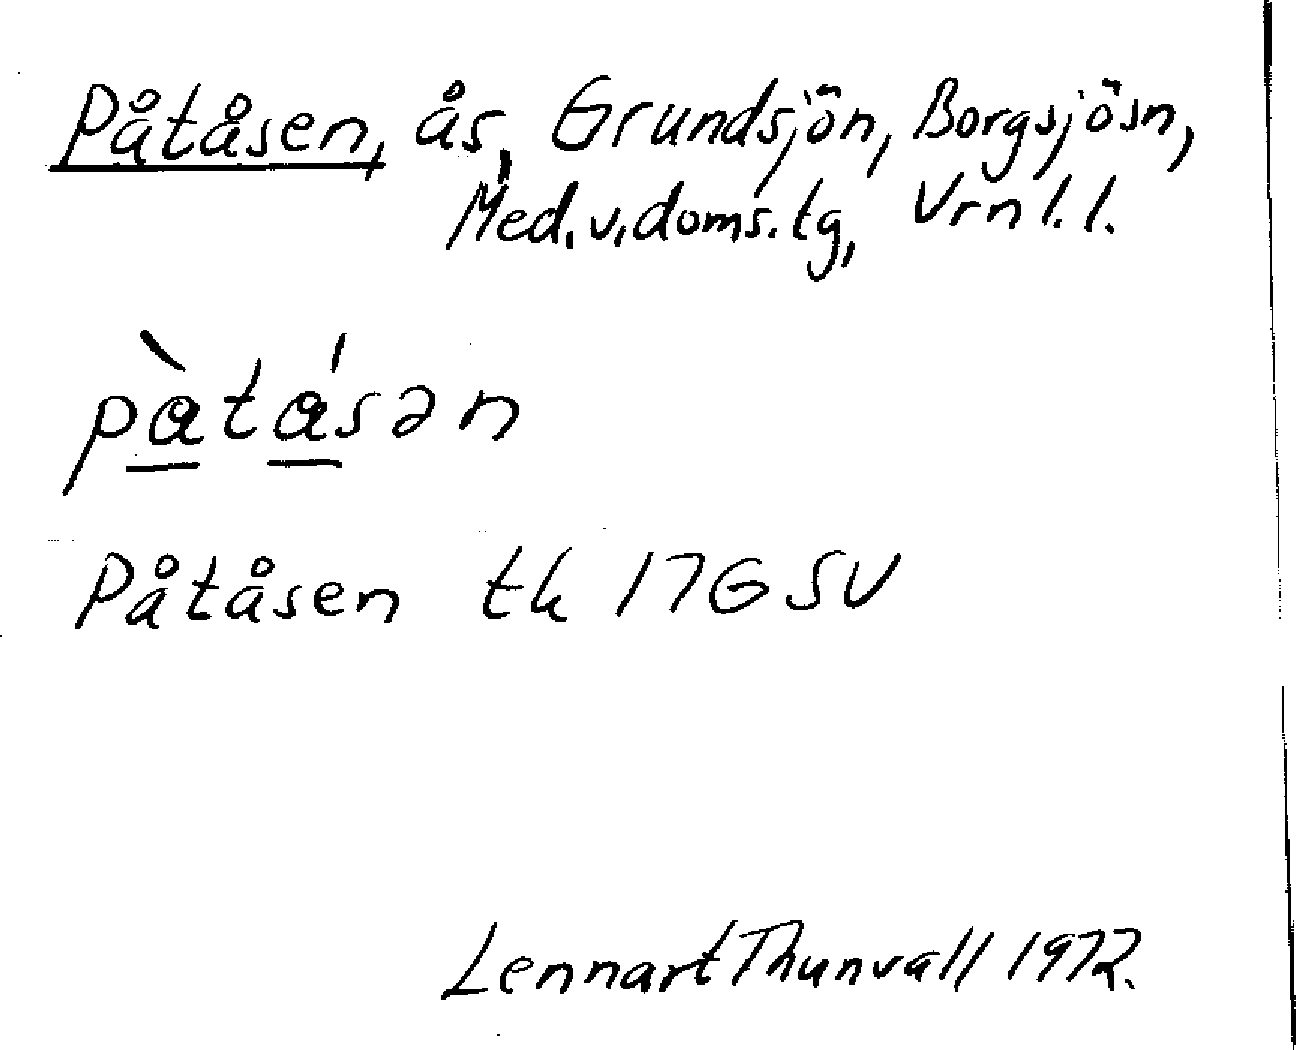 Påtåsen, ås, Grundsjön, Borgsjösn,
Med.v.doms.tg, Vrnl.l.
pàtásən
Påtåsen tk 17G SV
Lennart Thunvall 1972.